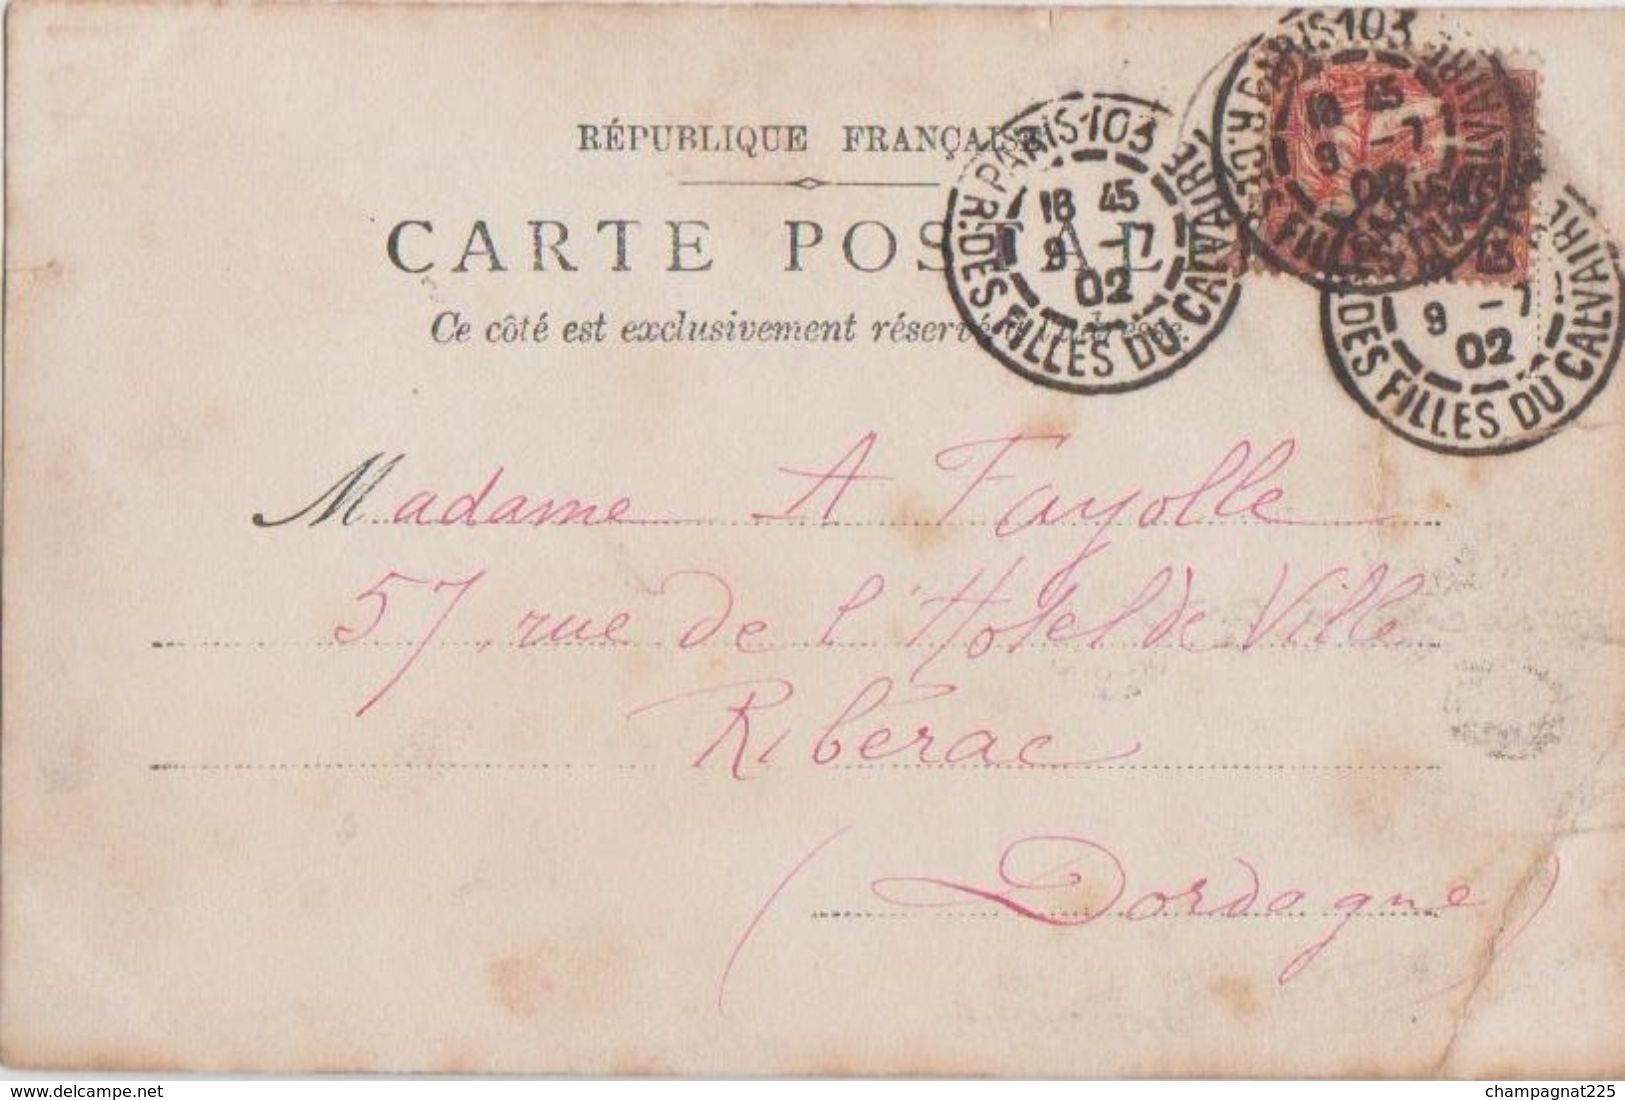 RÉPUBLIQUE FRANÇAISE
CARTE POSTALE
Ce côté est exclusivement réservé à l'adresse.
PARIS-103
18 45
9 -7
02
R. DES FILLES DU CALVAIRE
PARIS 103
18 45
9 -7
02
R. DES FILLES DU CALVAIRE
45
9 -7
02
DES FILLES DU CALVAIRE
Madame A Fayolle
57, rue de l'Hotel de Ville
Ribérac
(Dordogne)
champagnat225